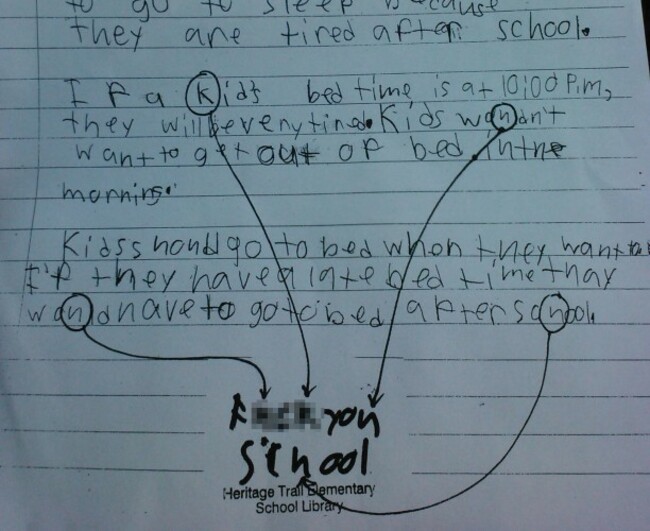 to go to sleep because
they are tired after school.
If a kid's bed time is at 10:00 P.m,
they will be very tired. Kids wondn't
want to get out of bed in the
morning.
Kids shondd go to bed when they want to
If they have a late bed time thay
wondn have to go to bed after school
you
School
Heritage Trail Elementary
School Library